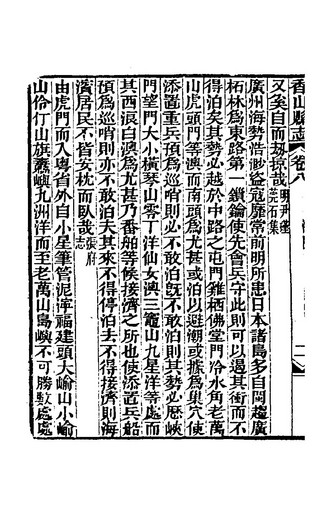 香山縣志 卷八
又奚自而刼掠哉
廣州海勢浩渺盜寇靡常前明所患日本諸島多自閩趨廣
柘林爲東路第一鎖鑰使先會兵守此則可以遏其衝而不
得泊矣其勢必越於中路之屯門雞棲佛堂門冷水角老萬
山虎頭門等澳而南頭爲尤甚或泊以避潮或據爲巢穴使
添置重兵預爲巡哨則必不敢泊旣不敢泊則其勢必歷峽
門望門大小橫琴山零丁洋仙女澳三竈山九星洋等處而
其西浪白澳爲尤甚乃番舶等候接濟之所也使添置兵船
預爲巡哨則亦不敢泊夫其來不得停泊去不得接濟則海
濱居民不皆安枕而臥哉張府志
由虎門而入粵省外自小星筆管泥濘福建頭大崳山小崳
山伶仃山旗纛嶼九洲洋而至老萬山島嶼不可勝數處處